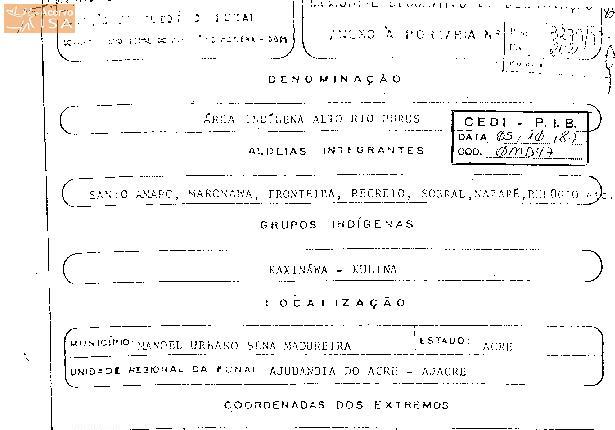 ACERVO
ISA
FUNAI
MEMORIAL DESCRITIVO DE
ANEXO À PORTARIA Nº
DENOMINAÇÃO
ÁREA INDÍGENA ALTO RIO PURUS
CEDI - P.I.B.
DATA 05, 10, 87
COD. 0MD47
ALDEIAS INTEGRANTES
SANTO AMARO, MARONAWA, FRONTEIRA, RECREIO, SOBRAL, NAZARÉ, RELÓGIO
GRUPOS INDÍGENAS
KAXINÁWA - KULINA
LOCALIZAÇÃO
MUNICÍPIO: MANOEL URBANO SENA MADUREIRA ESTADO: ACRE
UNIDADE REGIONAL DA FUNAI AJUDANCIA DO ACRE - AJACRE
COORDENADAS DOS EXTREMOS